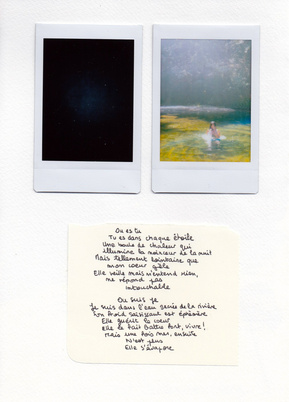 Où es tu
Tu es dans chaque étoile
Une boule de chaleur qui
illumine la noirceur de la nuit
Mais tellement lointaine que
mon coeur gèle
Elle veille mais n'entend rien,
ne répond pas
intouchable
Où suis je
Je suis dans l'eau glacée de la rivière
Son froid saisissant est éphémère
Elle guérit le coeur
Elle le fait battre fort, vivre!
Mais une fois mes, ensuite
N'est plus
Elle s'évapore